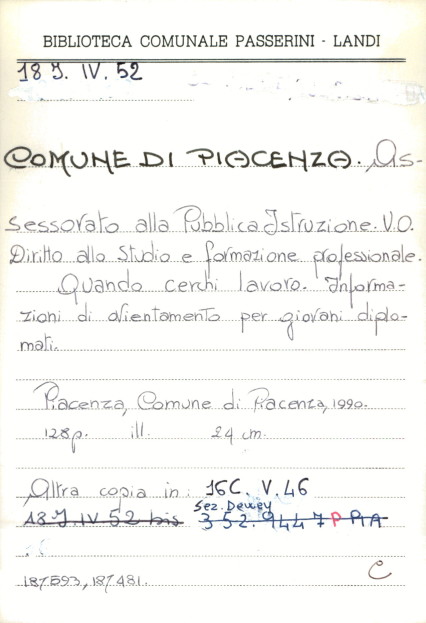 BIBLIOTECA COMUNALE PASSERINI - LANDI
18 J. IV. 52
COMUNE DI PIACENZA. As-
sessorato alla Pubblica Istruzione. V.O.
Diritto allo Studio e formazione professionale.
Quando cerchi lavoro. Informa-
zioni di orientamento per giovani diplo-
mati.
Piacenza, Comune di Piacenza, 1990.
128p. ill. 24 cm.
Altra copia in: 16C. V. 46
Sez. Dewey
18 J IV 52 bis 352.9447 P PIA
187593, 187481.
C